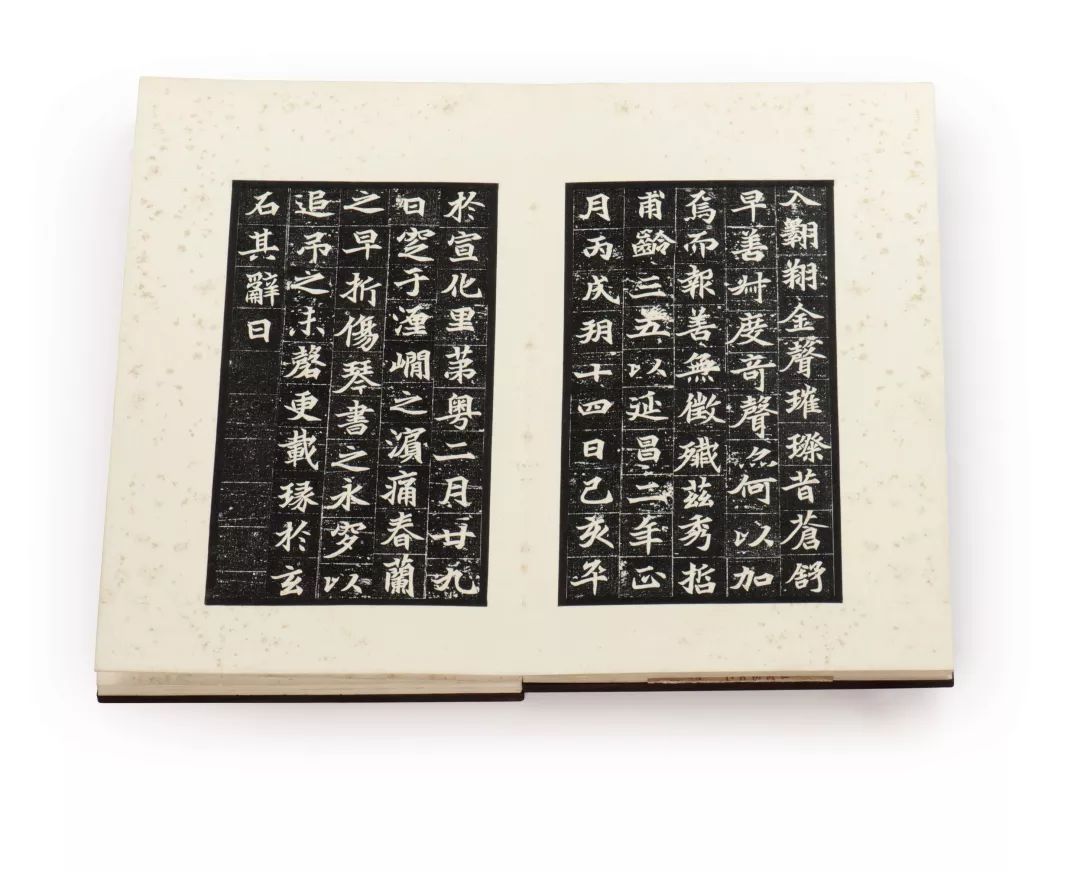 入翺翔金聲璀璨昔蒼舒
早善叔度奇聲亦何以加
焉而報善無徵殲茲秀哲
甫齡三五以延昌二年正
月丙戌朔十四日己亥卒
於宣化里第粤二月廿九
日窆于瀍澗之濵痛春蘭
之早折傷琴書之永穸以
追吊之未磬更載琢於玄
石其辭曰